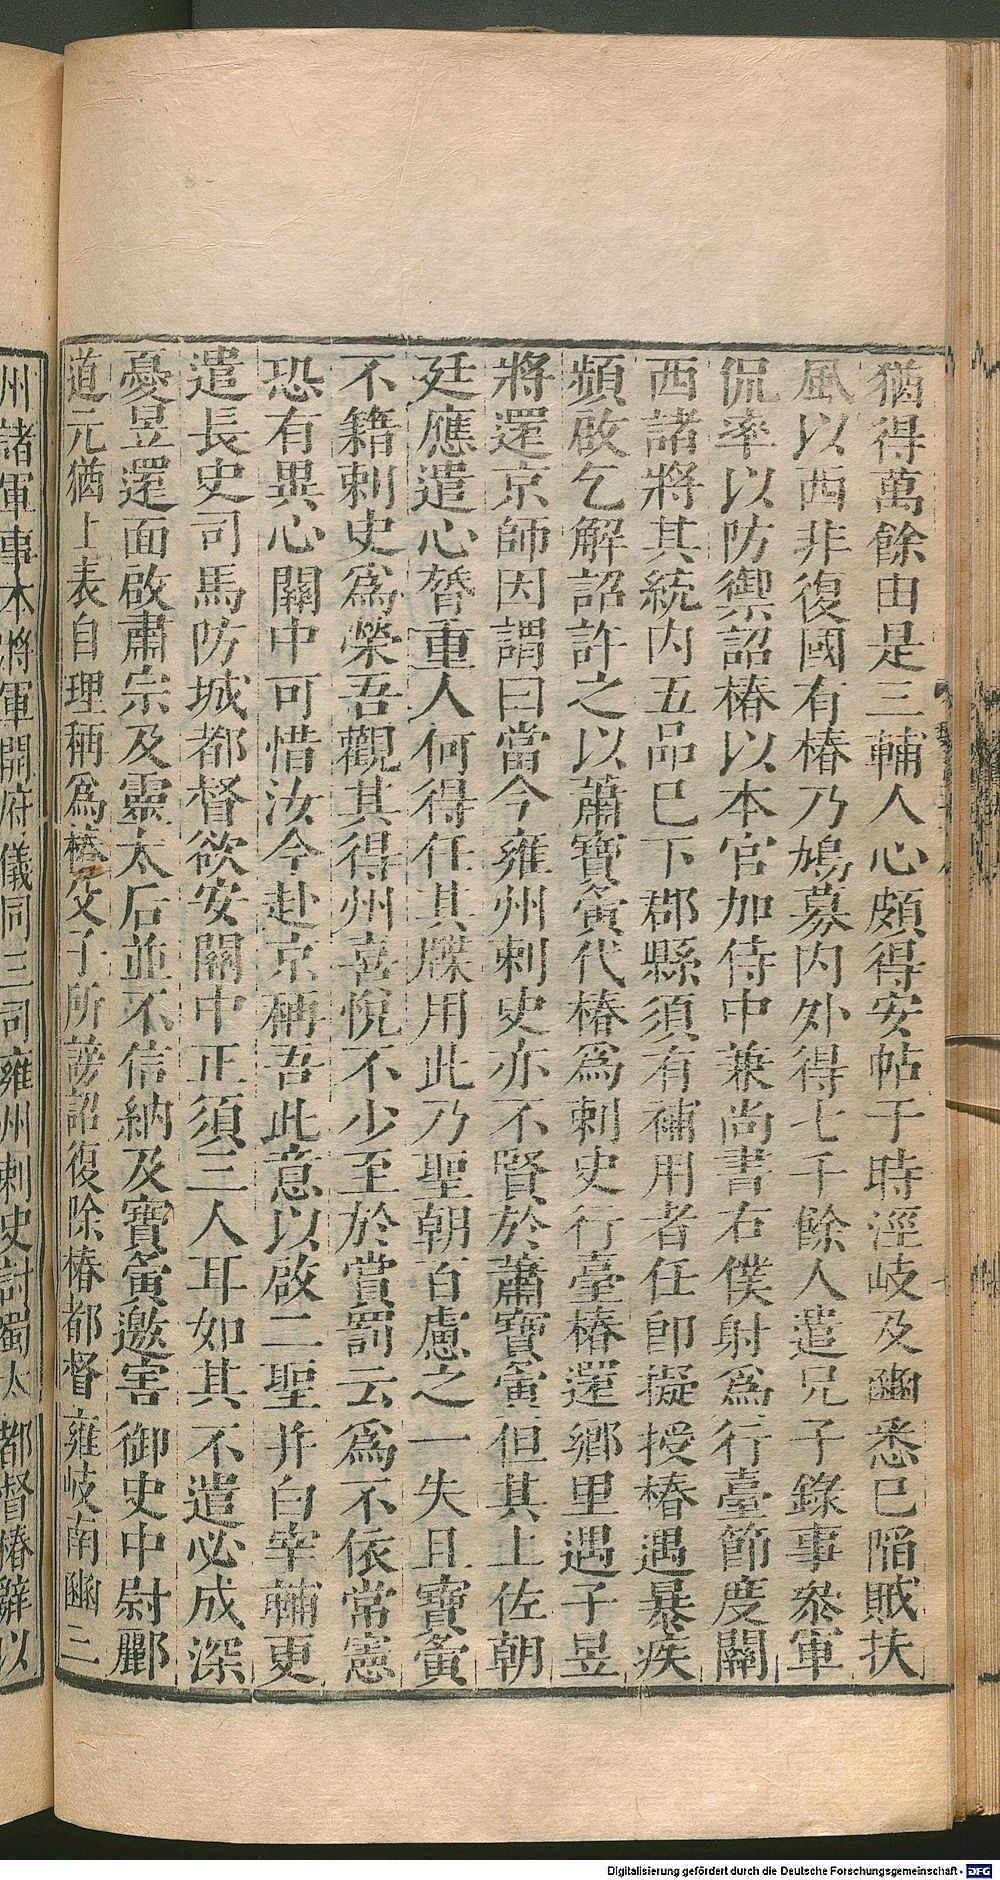 猶得萬餘由是三輔人心頗得安帖于時涇岐及豳悉已陷賊扶
風以西非復國有椿乃鳩募内外得七千餘人遣兄子錄事參軍
侃率以防禦詔椿以本官加侍中兼尚書右僕射爲行臺節度關
西諸將其統内五品已下郡縣須有補用者任卽擬授椿遇暴疾
頻啟乞解詔許之以蕭寶夤代椿爲刺史行臺椿還鄉里遇子昱
將還京師因謂曰當今雍州刺史亦不賢於蕭寶夤但其上佐朝
廷應遣心膂重人何得任其牒用此乃聖朝百慮之一失且寶夤
不籍刺史爲榮吾觀其得州喜悅不少至於賞罰云爲不依常憲
恐有異心關中可惜汝今赴京稱吾此意以啟二聖并白宰輔更
遣長史司馬防城都督欲安關中正須三人耳如其不遣必成深
憂昱還面啟肅宗及靈太后並不信納及寶夤邀害御史中尉酈
道元猶上表自理稱爲椿父子所謗詔復除椿都督雍岐南豳三
州諸軍事本將軍開府儀同三司雍州刺史討蜀大都督椿辭以
Digitalisierung gefördert durch die Deutsche Forschungsgemeinschaft - DFG